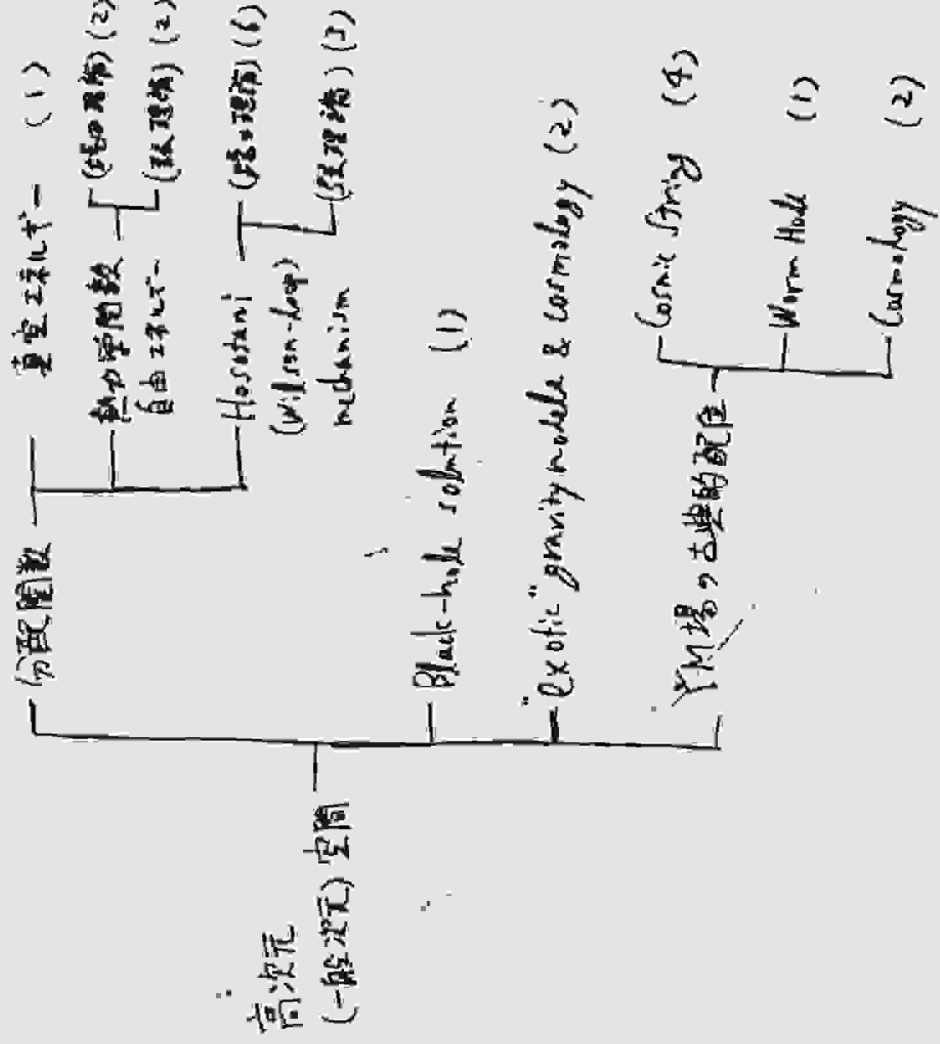 高次元
(一般次元) 空間
分配関数
真空エネルギー (1)
熱力学関数
自由エネルギー
(場の理論) (2)
(弦理論) (2)
Hosotani
(Wilson-loop)
mechanism
(場の理論) (6)
(弦理論) (3)
Black-hole solution (1)
"exotic" gravity models & cosmology (2)
YM場の古典的配位
Cosmic String (4)
Worm Hole (1)
Cosmology (2)